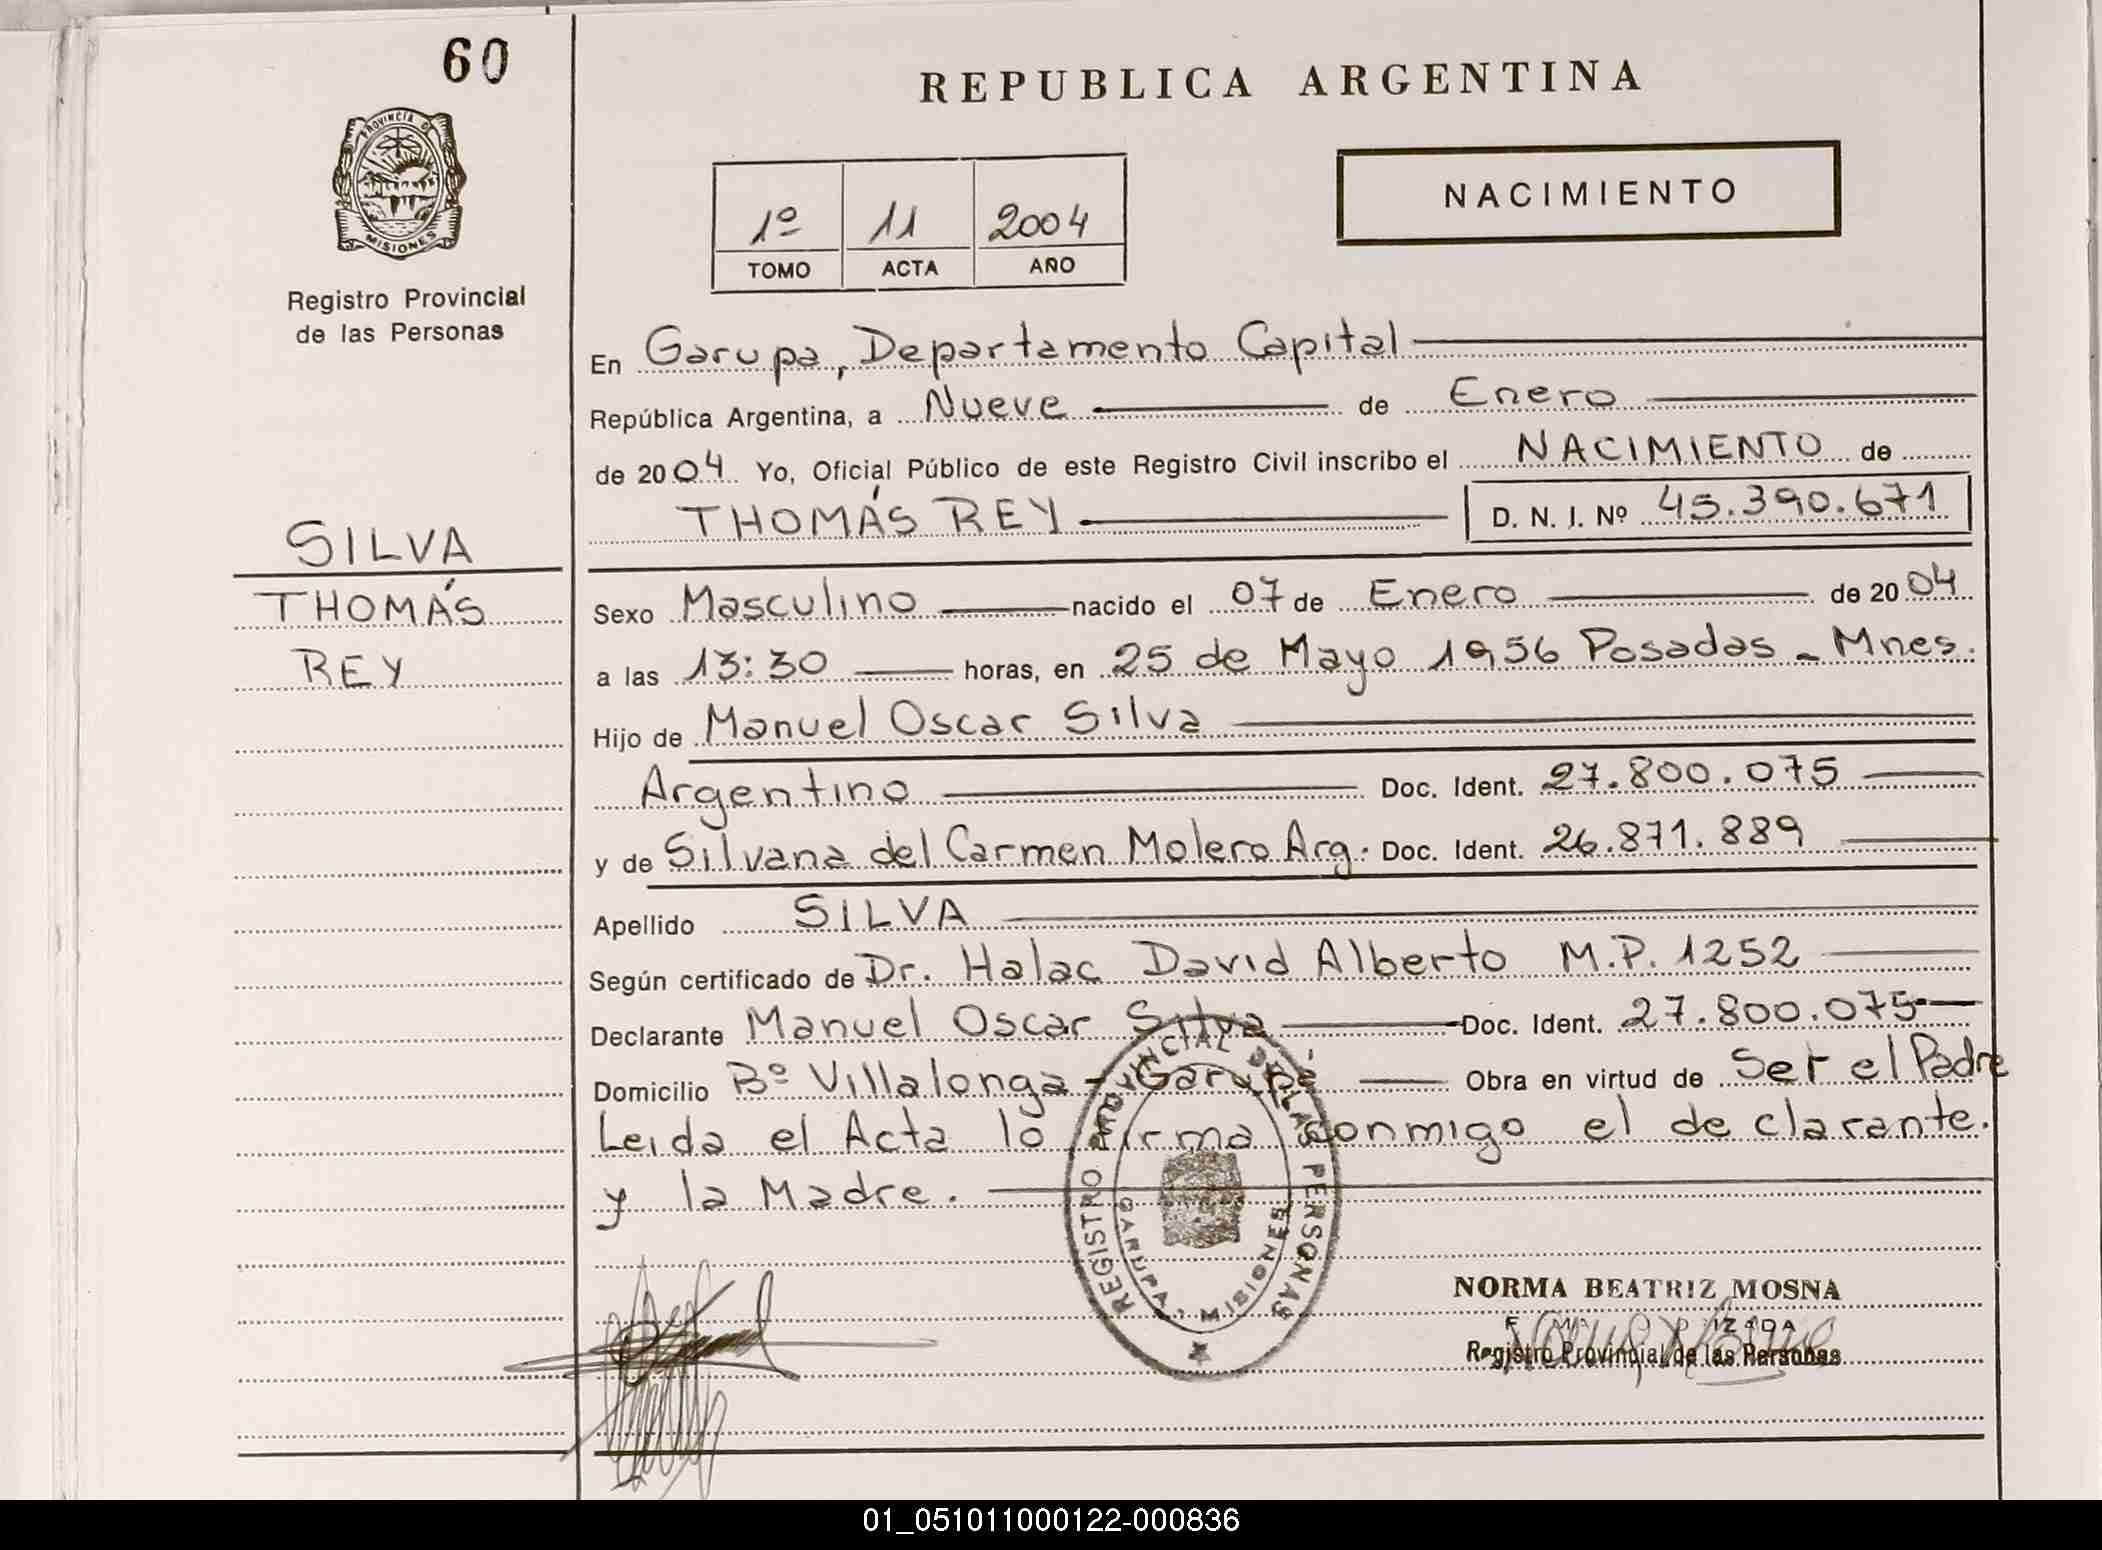 60
REPUBLICA ARGENTINA
PROVINCIA DE
MISIONES
NACIMIENTO
1º 11 2004
TOMO ACTA AÑO
Registro Provincial
de las Personas
En Garupa, Departamento Capital
República Argentina, a Nueve de Enero
de 2004 Yo, Oficial Público de este Registro Civil inscribo el NACIMIENTO de
THOMÁS REY D. N. I. Nº 45.390.671
SILVA
THOMÁS
REY
Sexo Masculino nacido el 07 de Enero de 2004
a las 13:30 horas, en 25 de Mayo 1956 Posadas - Mnes.
Hijo de Manuel Oscar Silva
Argentino Doc. Ident. 27.800.075
y de Silvana del Carmen Molero Arg. Doc. Ident. 26.871.889
Apellido SILVA
Según certificado de Dr. Halac David Alberto M.P. 1252
Declarante Manuel Oscar Silva Doc. Ident. 27.800.075
Domicilio Bº Villalonga - Garupá Obra en virtud de Ser el Padre
Leida el Acta lo firma conmigo el declarante.
y la Madre.
REGISTRO PROVINCIAL DE LAS PERSONAS
GARUPA - MISIONES
NORMA BEATRIZ MOSNA
Registro Provincial de las Personas
01_051011000122-000836